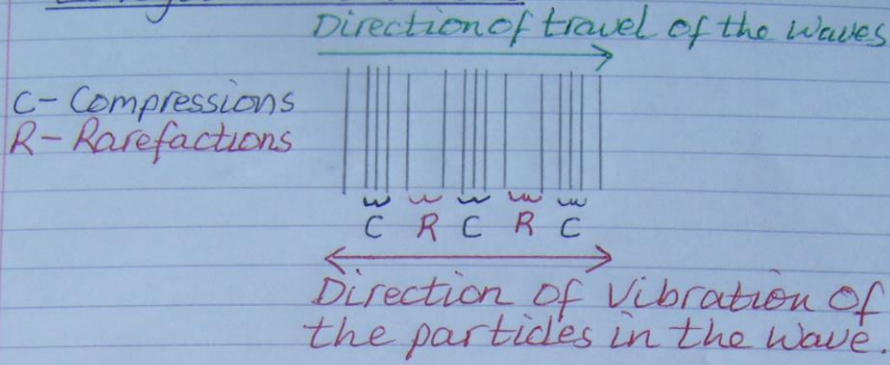 Direction of travel of the waves
C- Compressions
R- Rarefactions
C R C R C
Direction of Vibration of
the particles in the Wave.